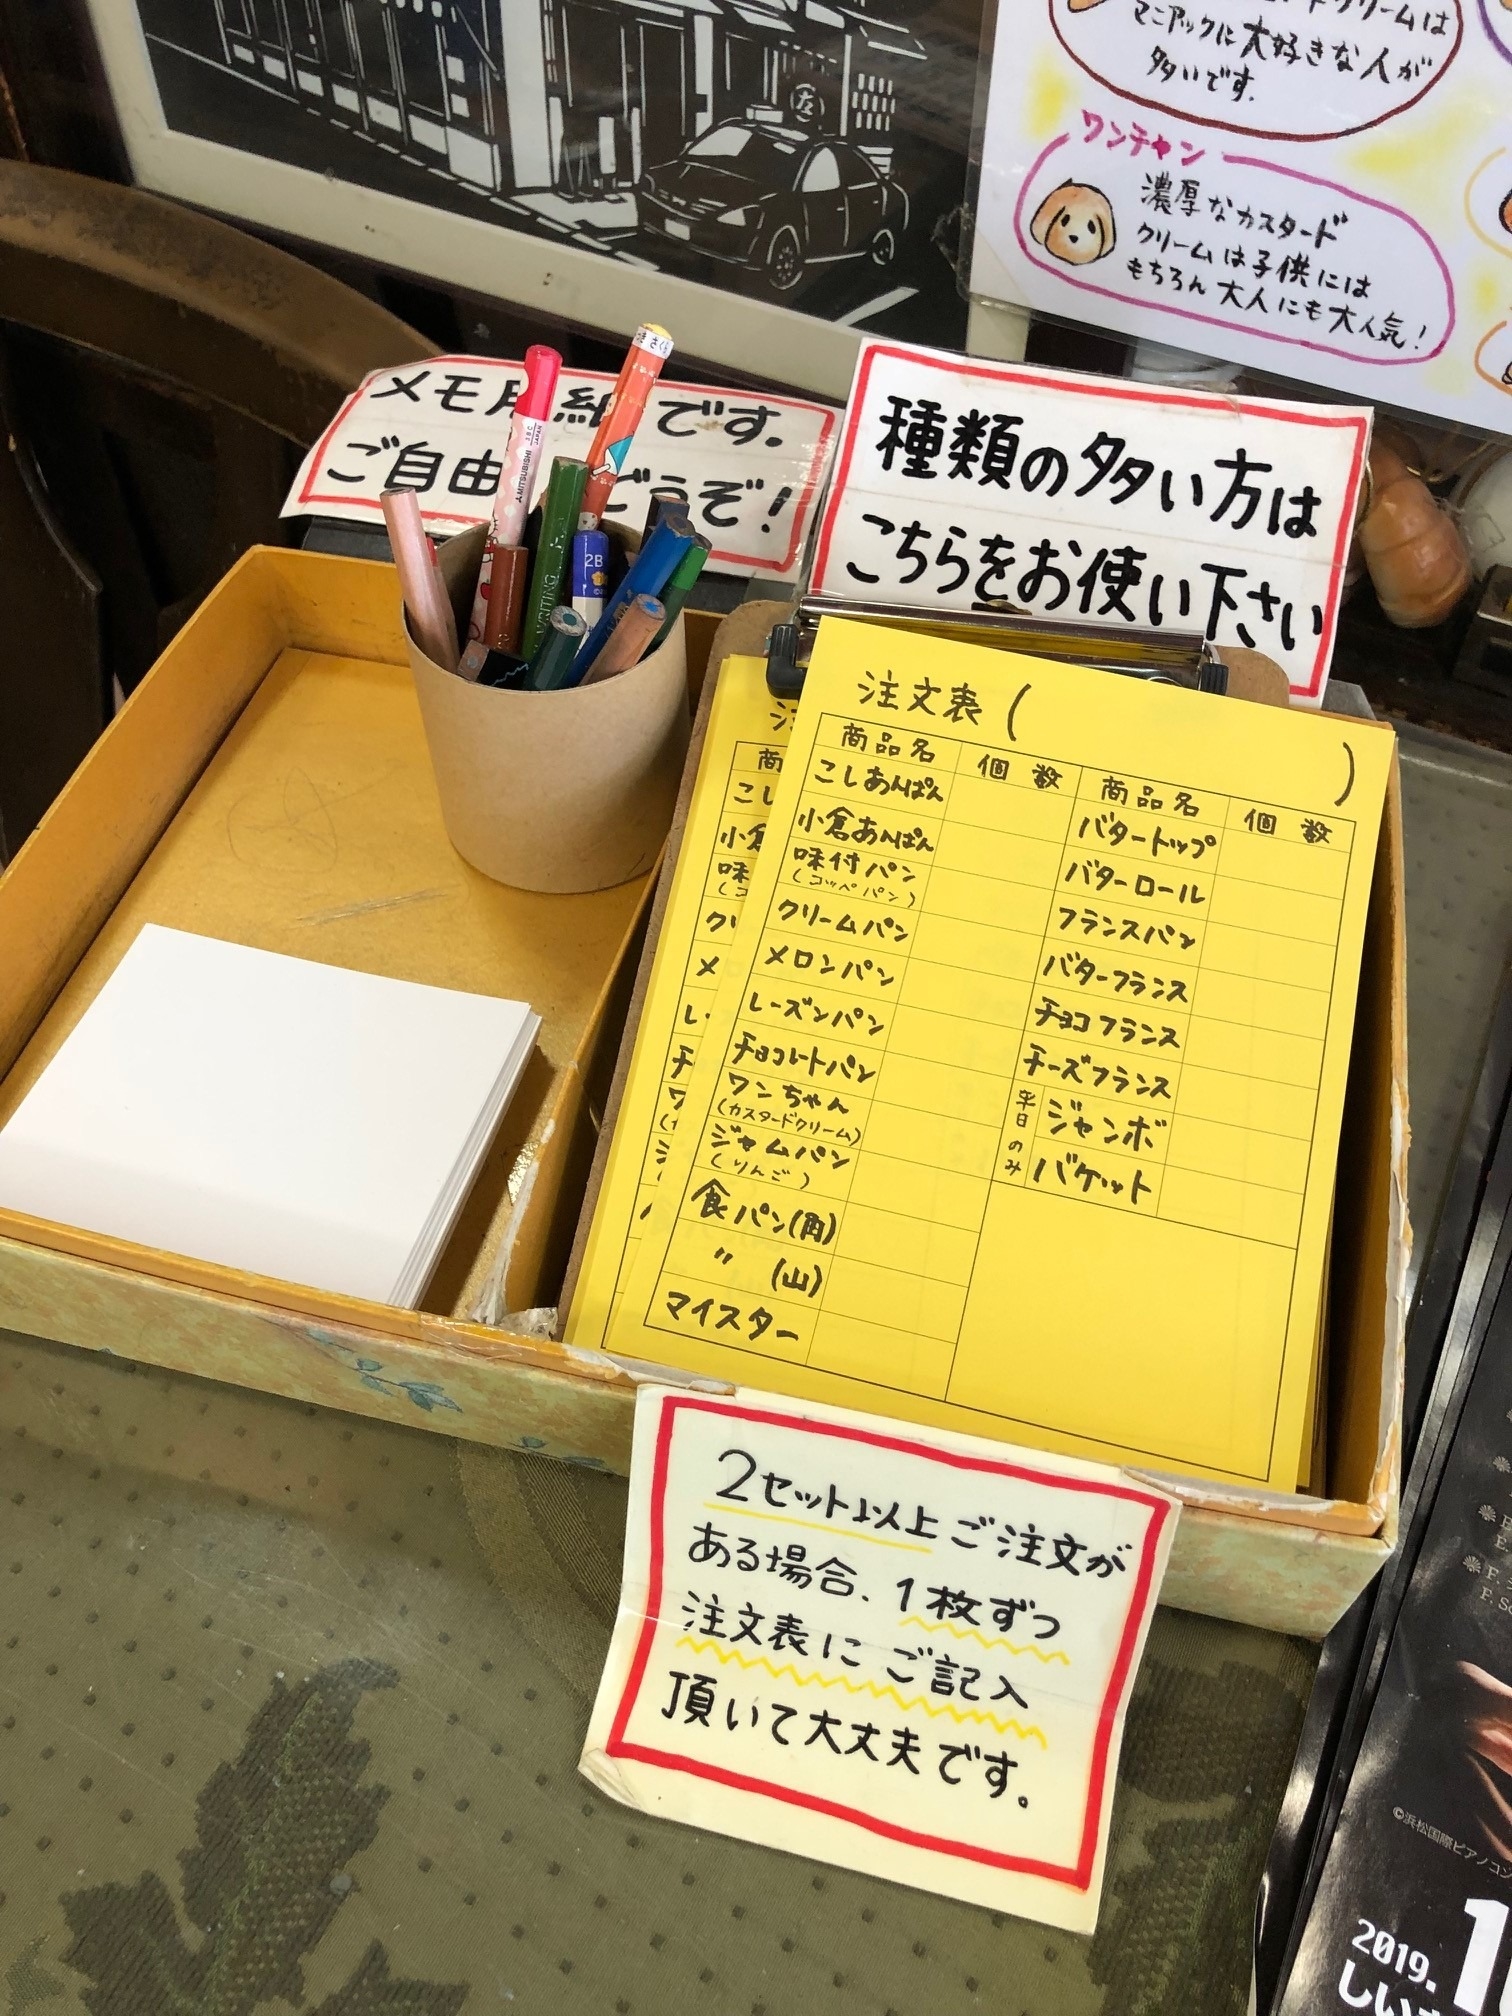 ドクリームは
マニアックに大好きな人が
多いです.
ワンチャン
濃厚なカスタード
クリームは子供には
もちろん大人にも大人気!
左
メモ用紙です.
ご自由 どうぞ!
MITSUBISHI
JAPAN
2B
WRITING
種類の多い方は
こちらをお使い下さい
注文表( )
商品名 個数 商品名 個数
こしあんぱん バタートップ
小倉あんぱん バターロール
味付パン フランスパン
(コッペパン)
クリームパン バターフランス
メロンパン チョコフランス
レーズンパン チーズフランス
チョコレートパン 平日のみ ジャンボ
ワンちゃん バケット
(カスタードクリーム)
ジャムパン
(りんご)
食パン(角)
〃 (山)
マイスター
2セット以上ご注文が
ある場合、1枚ずつ
注文表にご記入
頂いて大丈夫です。
©浜松国際ピアノコン
2019.